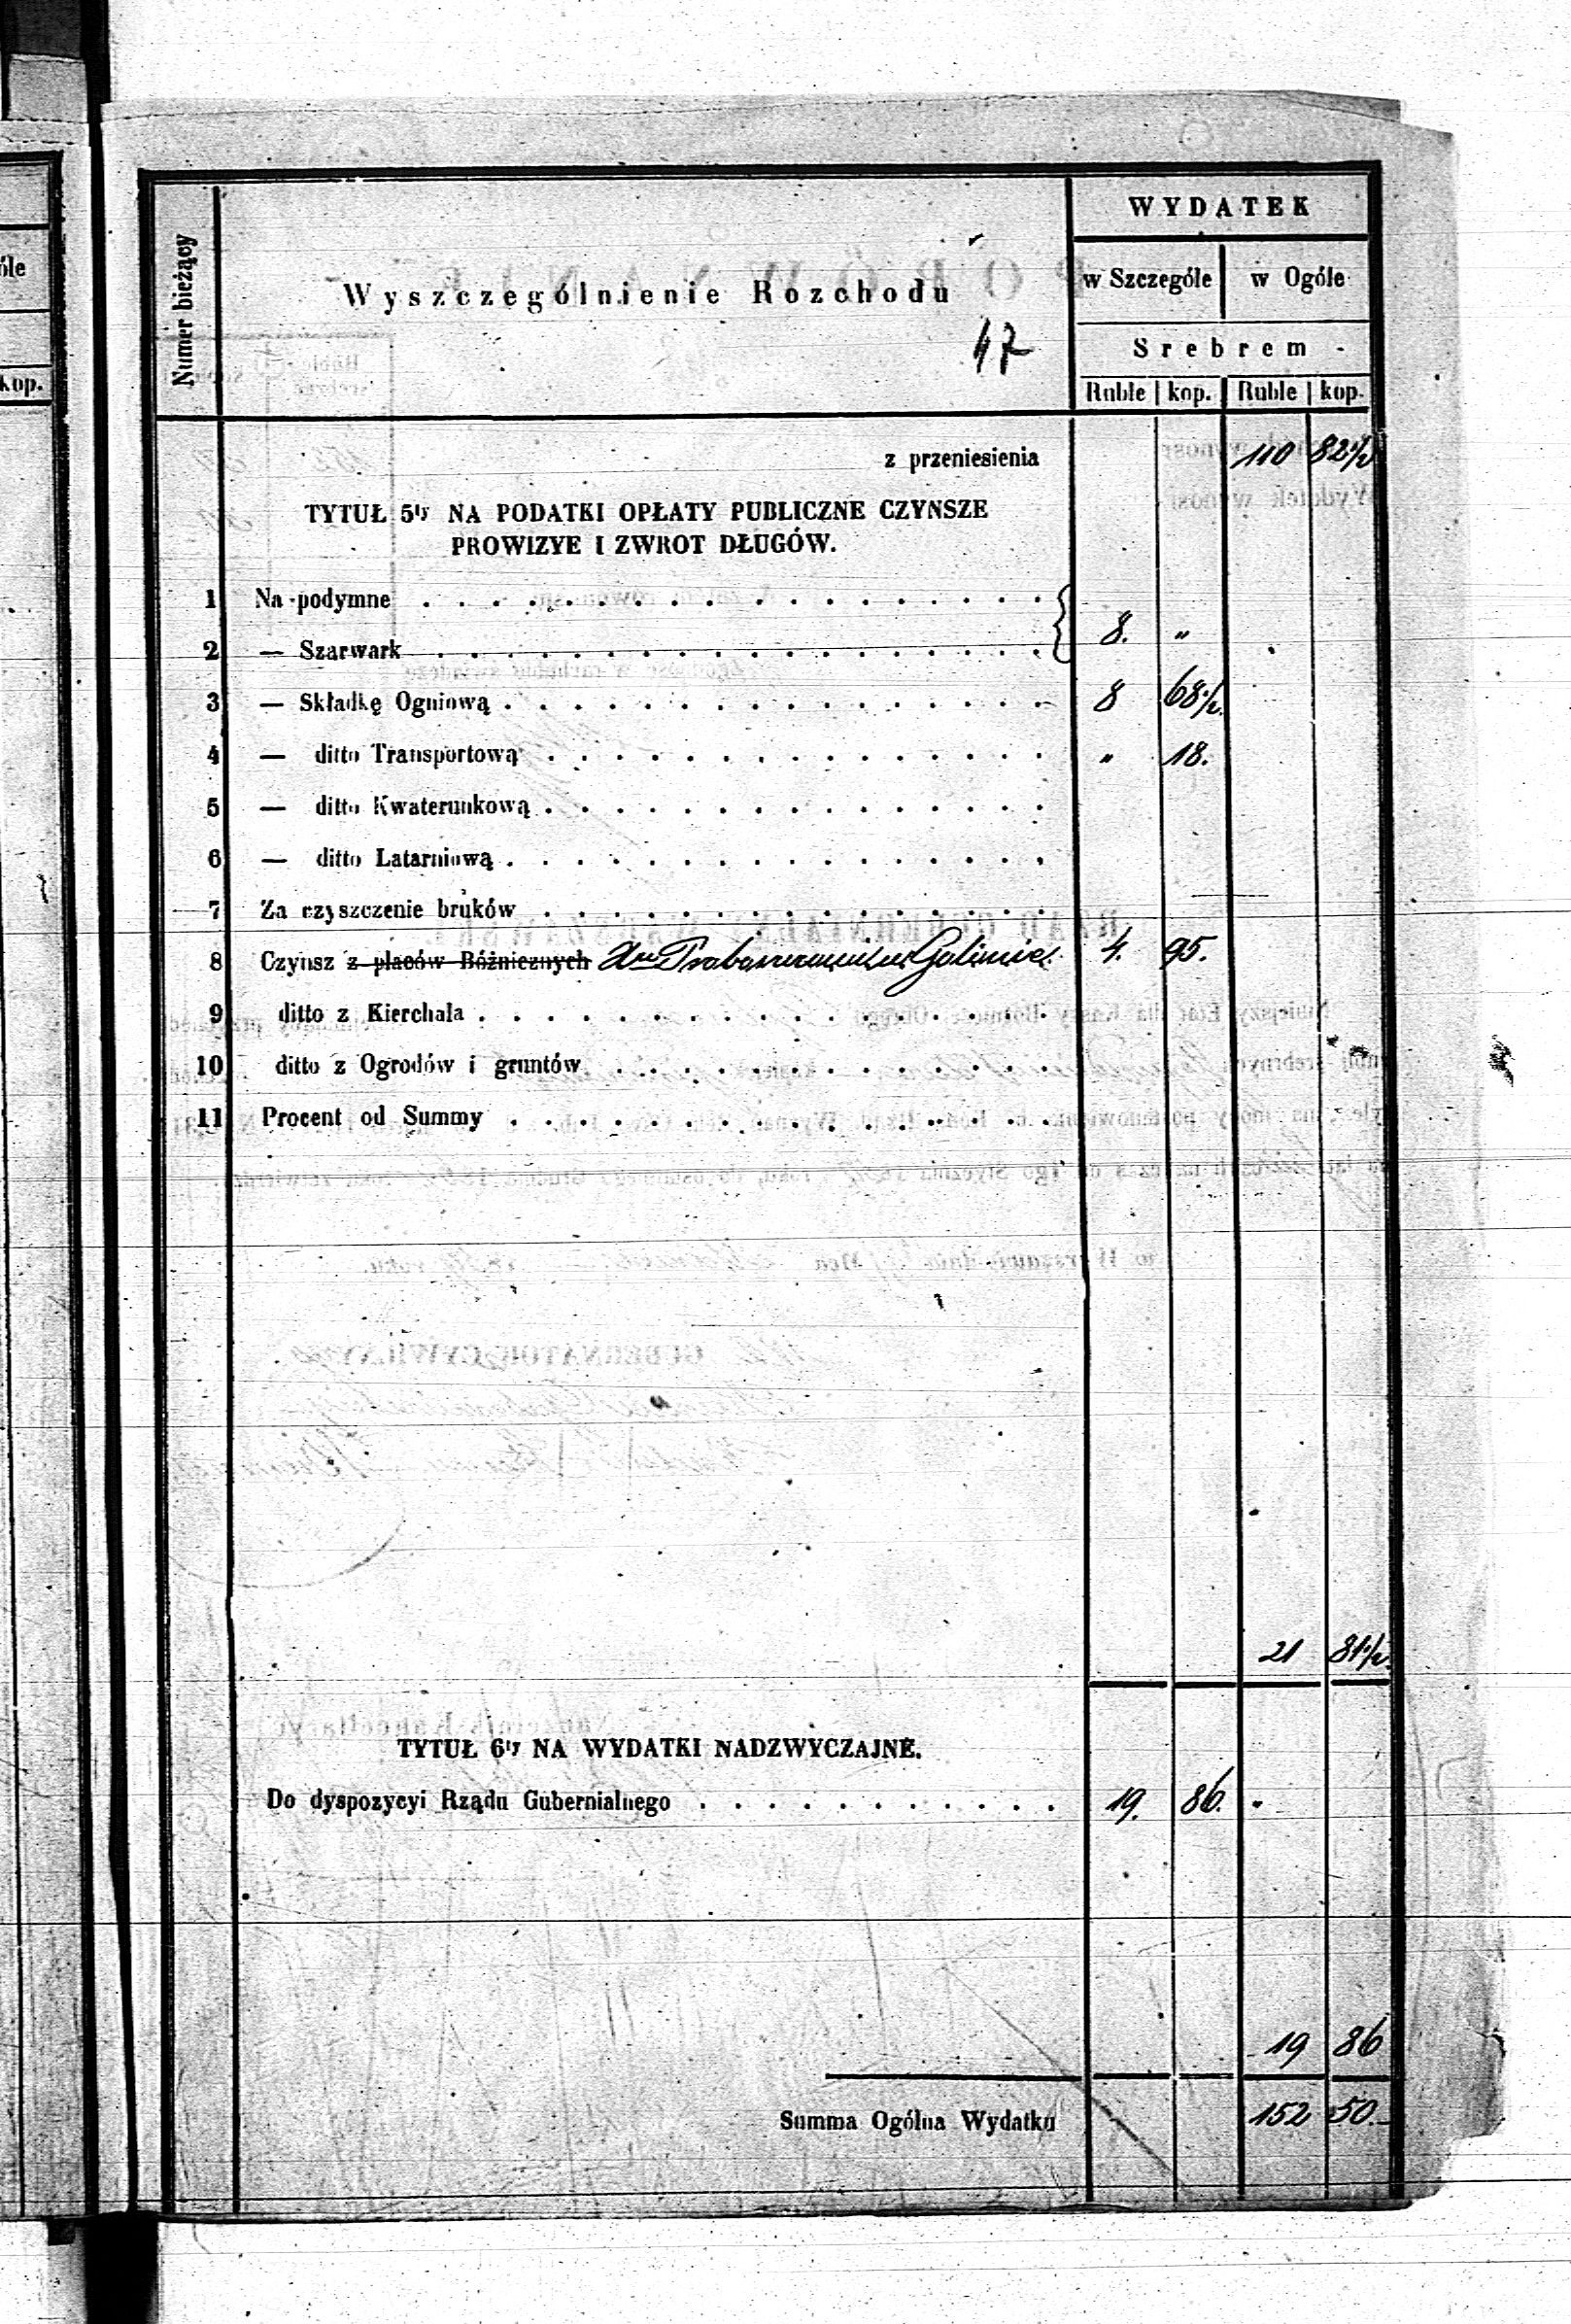 WYDATEK
Numer bieżący
Wyszczególnienie Rozchodu
w Szczególe w Ogóle
47
Srebrem
Ruble kop. Ruble kop.
óle
kop.
z przeniesienia 110 82 1/2
TYTUŁ 5ty NA PODATKI OPŁATY PUBLICZNE CZYNSZE
PROWIZYE I ZWROT DŁUGÓW.
1 Na podymne
2 — Szarwark 8. „
3 — Składkę Ogniową 8 68 1/2.
4 — ditto Transportową „ 18.
5 — ditto Kwaterunkową
6 — ditto Latarniową
7 Za czyszczenie bruków
8 Czynsz z placów Bóżnicznych 4. 95.
9 ditto z Kierchala
10 ditto z Ogrodów i gruntów
11 Procent od Summy
21 81 1/2.
TYTUŁ 6ty NA WYDATKI NADZWYCZAJNE.
Do dyspozycyi Rządu Gubernialnego 19. 86.
19 86
Summa Ogólna Wydatku 152 50.